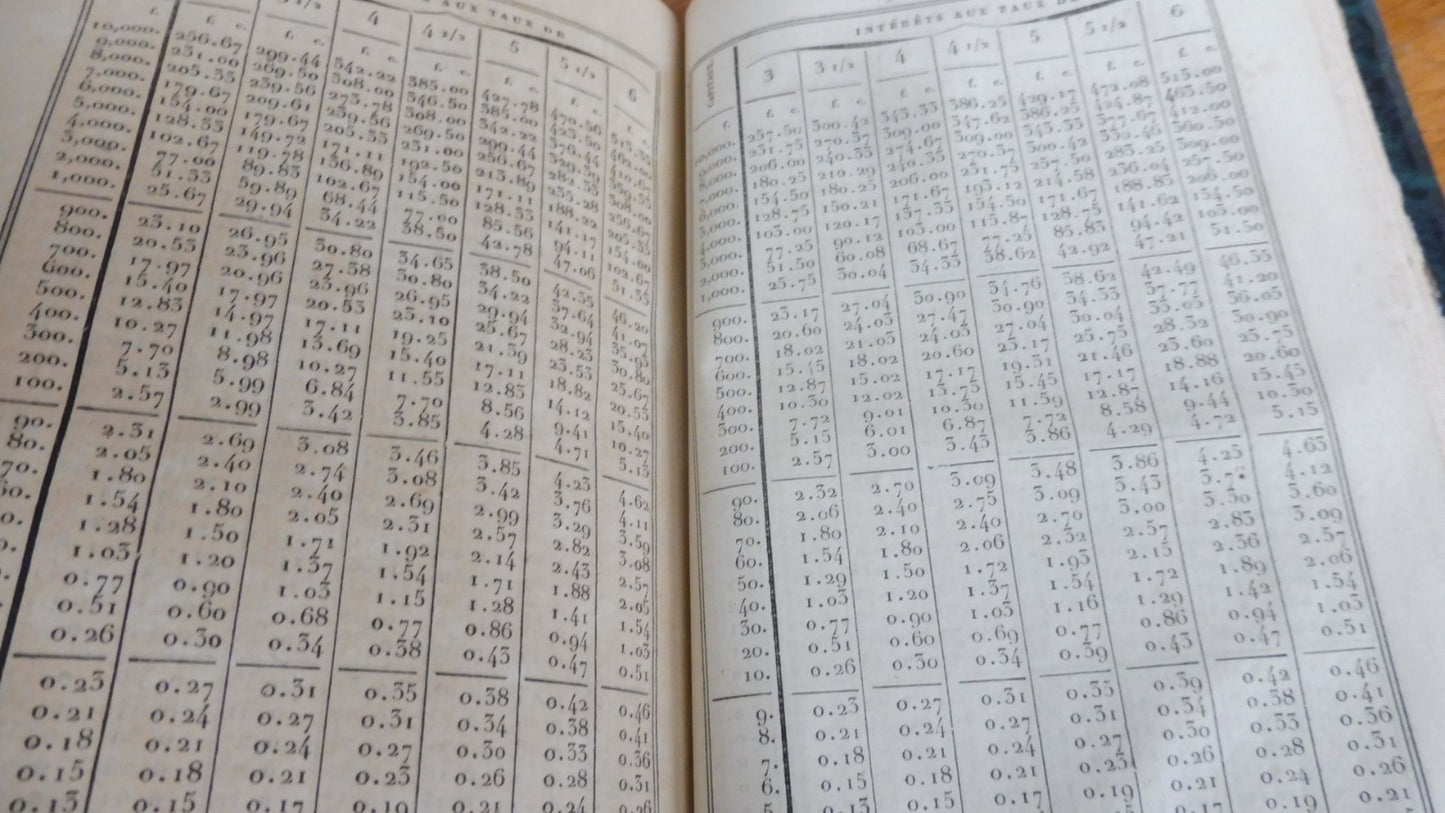 S AUX TAUX DE
3 1/2 4 4 1/2 5 5 1/2 6
f. f. c. f. c. f. c. f. c. f. c. f.
10,000. 256.67 299.44 342.22 385.00 427.78 470.56 513.33
9,000. 231.00 269.50 308.00 346.50 385.00 423.50 462.00
8,000. 205.33 239.56 273.78 308.00 342.22 376.44 410.67
7,000. 179.67 209.61 239.56 269.50 299.44 329.39 359.33
6,000. 154.00 179.67 205.33 231.00 256.67 282.33 308.00
5,000. 128.33 149.72 171.11 192.50 213.89 235.28 256.67
4,000. 102.67 119.78 136.89 154.00 171.11 188.22 205.33
3,000. 77.00 89.83 102.67 115.50 128.33 141.17 154.00
2,000. 51.33 59.89 68.44 77.00 85.56 94.11 102.67
1,000. 25.67 29.94 34.22 38.50 42.78 47.06 51.33
900. 23.10 26.95 30.80 34.65 38.50 42.35 46.20
800. 20.53 23.96 27.38 30.80 34.22 37.64 41.07
700. 17.97 20.96 23.96 26.95 29.94 32.94 35.93
600. 15.40 17.97 20.53 23.10 25.67 28.23 30.80
500. 12.83 14.97 17.11 19.25 21.39 23.53 25.67
400. 10.27 11.98 13.69 15.40 17.11 18.82 20.53
300. 7.70 8.98 10.27 11.55 12.83 14.12 15.40
200. 5.13 5.99 6.84 7.70 8.56 9.41 10.27
100. 2.57 2.99 3.42 3.85 4.28 4.71 5.13
90. 2.31 2.69 3.08 3.46 3.85 4.23 4.62
80. 2.05 2.40 2.74 3.08 3.42 3.76 4.11
70. 1.80 2.10 2.40 2.69 2.99 3.29 3.59
60. 1.54 1.80 2.05 2.31 2.57 2.82 3.08
0. 1.28 1.50 1.71 1.92 2.14 2.43 2.57
1.03 1.20 1.37 1.54 1.71 1.88 2.05
0.77 0.90 1.03 1.15 1.28 1.41 1.54
0.51 0.60 0.68 0.77 0.86 0.94 1.03
0.26 0.30 0.34 0.38 0.43 0.47 0.51
0.23 0.27 0.31 0.35 0.38 0.42 0.46
0.21 0.24 0.27 0.31 0.34 0.38 0.41
0.18 0.21 0.24 0.27 0.30 0.33 0.36
0.15 0.18 0.21 0.23 0.26 0.28 0.31
0.13 0.15 0.17 0.19 0.21 0.24 0.26
INTÉRÊTS AUX TAUX DE
CAPITAUX. 3 3 1/2 4 4 1/2 5 5 1/2 6
f. f. c. f. c. f. c. f. c. f. c. f. c. f. c.
10,000. 257.50 300.42 343.33 386.25 429.17 472.08 515.00
9,000. 231.75 270.37 309.00 347.62 386.25 424.87 463.50
8,000. 206.00 240.33 274.67 309.00 343.33 377.67 412.00
7,000. 180.25 210.29 240.33 270.37 300.42 330.46 360.50
6,000. 154.50 180.25 206.00 231.75 257.50 283.25 309.00
5,000. 128.75 150.21 171.67 193.12 214.58 236.04 257.50
4,000. 103.00 120.17 137.33 154.50 171.67 188.83 206.00
3,000. 77.25 90.12 103.00 115.87 128.75 141.62 154.50
2,000. 51.50 60.08 68.67 77.25 85.83 94.42 103.00
1,000. 25.75 30.04 34.33 38.62 42.92 47.21 51.50
900. 23.17 27.04 30.90 34.76 38.62 42.49 46.35
800. 20.60 24.03 27.47 30.90 34.33 37.77 41.20
700. 18.02 21.03 24.03 27.04 30.04 33.05 36.05
600. 15.45 18.02 20.60 23.17 25.75 28.32 30.90
500. 12.87 15.02 17.17 19.31 21.46 23.60 25.75
400. 10.30 12.02 13.73 15.45 17.17 18.88 20.60
300. 7.72 9.01 10.30 11.59 12.87 14.16 15.45
200. 5.15 6.01 6.87 7.72 8.58 9.44 10.30
100. 2.57 3.00 3.43 3.86 4.29 4.72 5.15
90. 2.32 2.70 3.09 3.48 3.86 4.25 4.63
80. 2.06 2.40 2.75 3.09 3.43 3.7 4.12
70. 1.80 2.10 2.40 2.70 3.00 3.30 3.60
60. 1.54 1.80 2.06 2.32 2.57 2.83 3.09
50. 1.29 1.50 1.72 1.93 2.15 2.36 2.57
40. 1.03 1.20 1.37 1.54 1.72 1.89 2.06
30. 0.77 0.90 1.03 1.16 1.29 1.42 1.54
20. 0.51 0.60 0.69 0.77 0.86 0.94 1.03
10. 0.26 0.30 0.34 0.39 0.43 0.47 0.51
9. 0.23 0.27 0.31 0.35 0.39 0.42 0.46
8. 0.21 0.24 0.27 0.31 0.34 0.38 0.41
7. 0.18 0.21 0.24 0.27 0.30 0.33 0.36
6. 0.15 0.18 0.21 0.23 0.26 0.28 0.31
5. 0.13 0.15 0.17 0.19 0.21 0.24 0.26
0.17 0.19 0.21